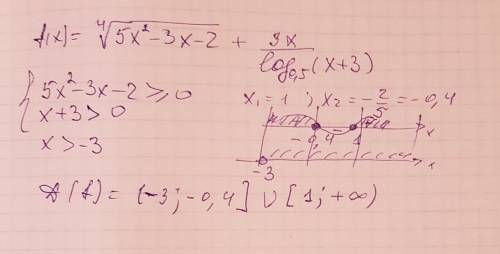 f(x) = ⁴√(5x²-3x-2) + 3x / log₀,₅(x+3)
{ 5x²-3x-2 ≥ 0
x+3 > 0
x > -3
x₁ = 1 ; x₂ = -2/5 = -0,4
-0,4 1 x
-3
D(f) = (-3; -0,4] ∪ [1; +∞)